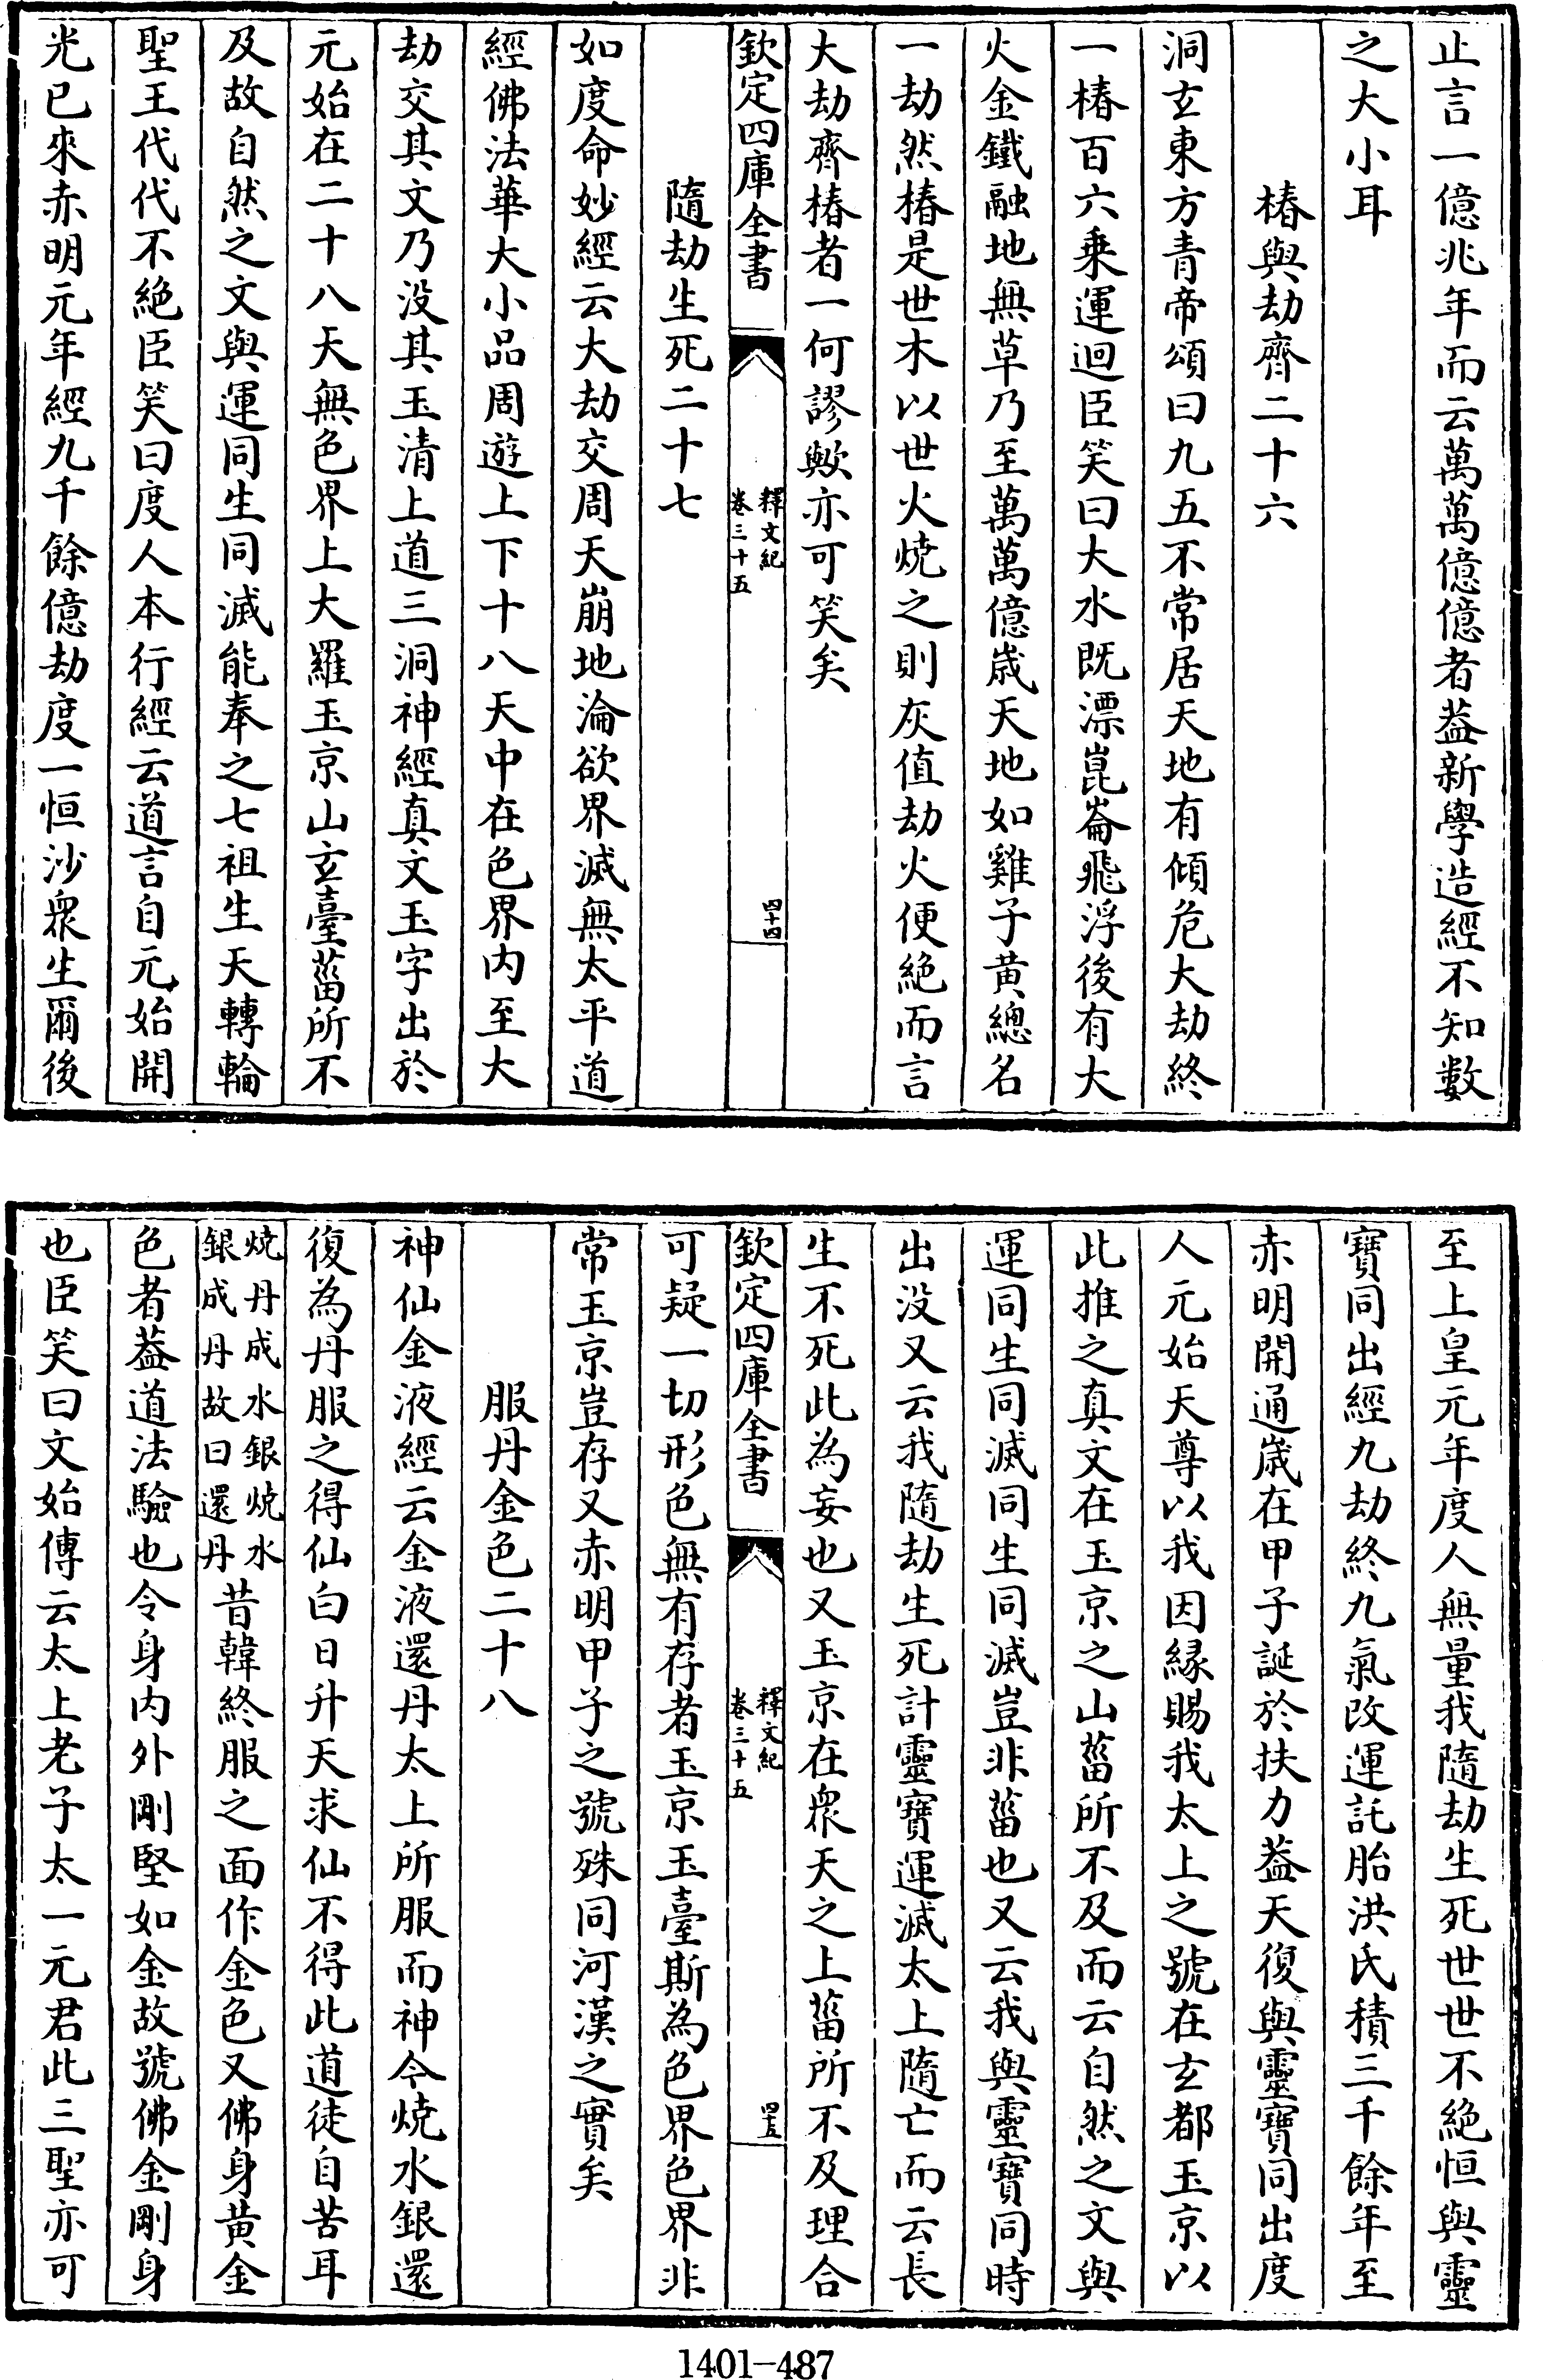 止言一億兆年而云萬萬億億者葢新學造經不知數
之大小耳
椿與劫齊二十六
洞玄東方青帝頌曰九五不常居天地有傾危大劫終
一椿百六乗運迴臣笑曰大水既漂崑崙飛浮後有大
火金鐵融地無草乃至萬萬億歳天地如雞子黄總名
一劫然椿是世木以世火焼之則灰值劫火便絶而言
大劫齊椿者一何謬歟亦可笑矣
欽定四庫全書
釋文紀
卷三十五
四十四
隨劫生死二十七
如度命妙經云大劫交周天崩地淪欲界滅無太平道
經佛法華大小品周遊上下十八天中在色界内至大
劫交其文乃没其玉清上道三洞神經真文玉字出於
元始在二十八天無色界上大羅玉京山玄臺菑所不
及故自然之文與運同生同滅能奉之七祖生天轉輪
聖王代代不絶臣笑曰度人本行經云道言自元始開
光已來赤明元年經九千餘億劫度一恒沙衆生爾後
至上皇元年度人無量我隨劫生死世世不絶恒與靈
寶同出經九劫終九氣改運託胎洪氏積三千餘年至
赤明開通歳在甲子誕於扶力葢天復與靈寶同出度
人元始天尊以我因縁賜我太上之號在玄都玉京以
此推之真文在玉京之山菑所不及而云自然之文與
運同生同滅同生同滅豈非菑也又云我與靈寶同時
出没又云我隨劫生死計靈寶運滅太上隨亡而云長
生不死此為妄也又玉京在衆天之上菑所不及理合
欽定四庫全書
釋文紀
卷三十五
四十五
可疑一切形色無有存者玉京玉臺斯為色界色界非
常玉京豈存又赤明甲子之號殊同河漢之實矣
服丹金色二十八
神仙金液經云金液還丹太上所服而神今焼水銀還
復為丹服之得仙白日升天求仙不得此道徒自苦耳
焼丹成水銀焼水
銀成丹故曰還丹
昔韓終服之面作金色又佛身黄金
色者葢道法驗也令身内外剛堅如金故號佛金剛身
也臣笑曰文始傳云太上老子太一元君此三聖亦可
1401-487